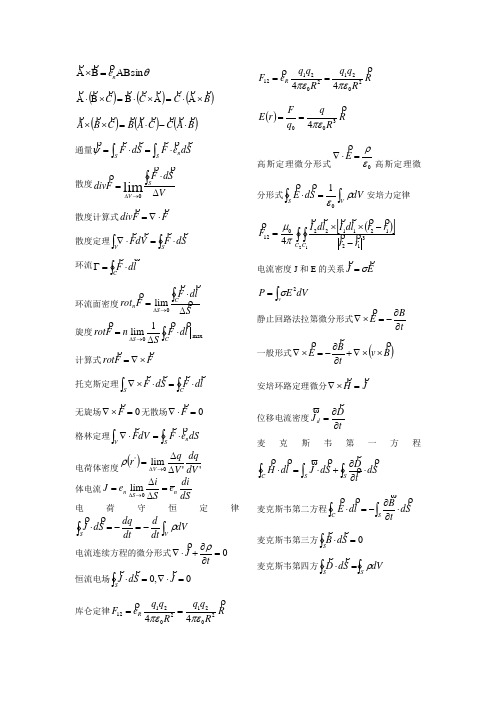 A⃗ × B⃗ = e⃗_n ABsinθ
A⃗·(B⃗ × C⃗) = B⃗·(C⃗ × A⃗) = C⃗·(A⃗ × B⃗)
A⃗ × (B⃗ × C⃗) = B⃗(A⃗·C⃗) − C⃗(A⃗·B⃗)
通量 ψ = ∫_S F⃗·dS⃗ = ∫_S F⃗·e⃗_n dS⃗
散度 divF⃗ = lim_{ΔV→0} ∮_S F⃗·dS⃗ / ΔV
散度计算式 divF⃗ = ∇·F⃗
散度定理 ∫_V ∇·F⃗dV = ∮_S F⃗·dS⃗
环流 Γ = ∮_C F⃗·dl⃗
环流面密度 rot_n F⃗ = lim_{ΔS→0} ∮_C F⃗·dl⃗ / ΔS⃗
旋度 rotF⃗ = n⃗ lim_{ΔS→0} 1/ΔS ∮_C F⃗·dl⃗ |_max
计算式 rotF⃗ = ∇ × F⃗
托克斯定理 ∫_S ∇ × F⃗·dS⃗ = ∮_C F⃗·dl⃗
无旋场 ∇ × F⃗ = 0 无散场 ∇·F⃗ = 0
格林定理 ∫_V ∇·F⃗dV = ∮_S F⃗·e⃗_n dS
电荷体密度 ρ(r⃗') = lim_{ΔV'→0} Δq/ΔV' = dq/dV'
体电流 J = e_n lim_{ΔS→0} Δi/ΔS = e⃗_n di/dS
电荷守恒定律
∮_S J⃗·dS⃗ = −dq/dt = −d/dt ∫_V ρdV
电流连续方程的微分形式 ∇·J⃗ + ∂ρ/∂t = 0
恒流电场 ∮_S J⃗·dS⃗ = 0, ∇·J⃗ = 0
库仑定律 F_12 = e⃗_R q_1q_2/4πε_0R^2 = q_1q_2/4πε_0R^2 R⃗
F_12 = e⃗_R q_1q_2/4πε_0R^2 = q_1q_2/4πε_0R^2 R⃗
E(r) = F/q_0 = q/4πε_0R^3 R⃗
高斯定理微分形式 ∇·E⃗ = ρ/ε_0 高斯定理微
分形式 ∮_S E⃗·dS⃗ = 1/ε_0 ∫_V ρdV 安培力定律
F⃗_12 = μ_0/4π ∮_{C_2} ∮_{C_1} I_2dl_2 × I_1dl_1 × (r⃗_2 − r⃗_1) / |r⃗_2 − r⃗_1|^3
电流密度 J 和 E 的关系 J⃗ = σE⃗
P = ∫_v σE^2 dV
静止回路法拉第微分形式 ∇ × E⃗ = −∂B/∂t
一般形式 ∇ × E⃗ = −∂B⃗/∂t + ∇ × (v × B⃗)
安培环路定理微分 ∇ × H⃗ = J⃗
位移电流密度 J⃗_d = ∂D⃗/∂t
麦克斯韦第一方程
∮_C H⃗·dl⃗ = ∫_S J⃗·dS⃗ + ∮_S ∂D⃗/∂t·dS⃗
麦克斯韦第二方程 ∮_C E⃗·dl⃗ = −∫_S ∂B⃗/∂t·dS⃗
麦克斯韦第三方 ∮_S B⃗·dS⃗ = 0
麦克斯韦第四方 ∮_S D⃗·dS⃗ = ∮_S ρdV